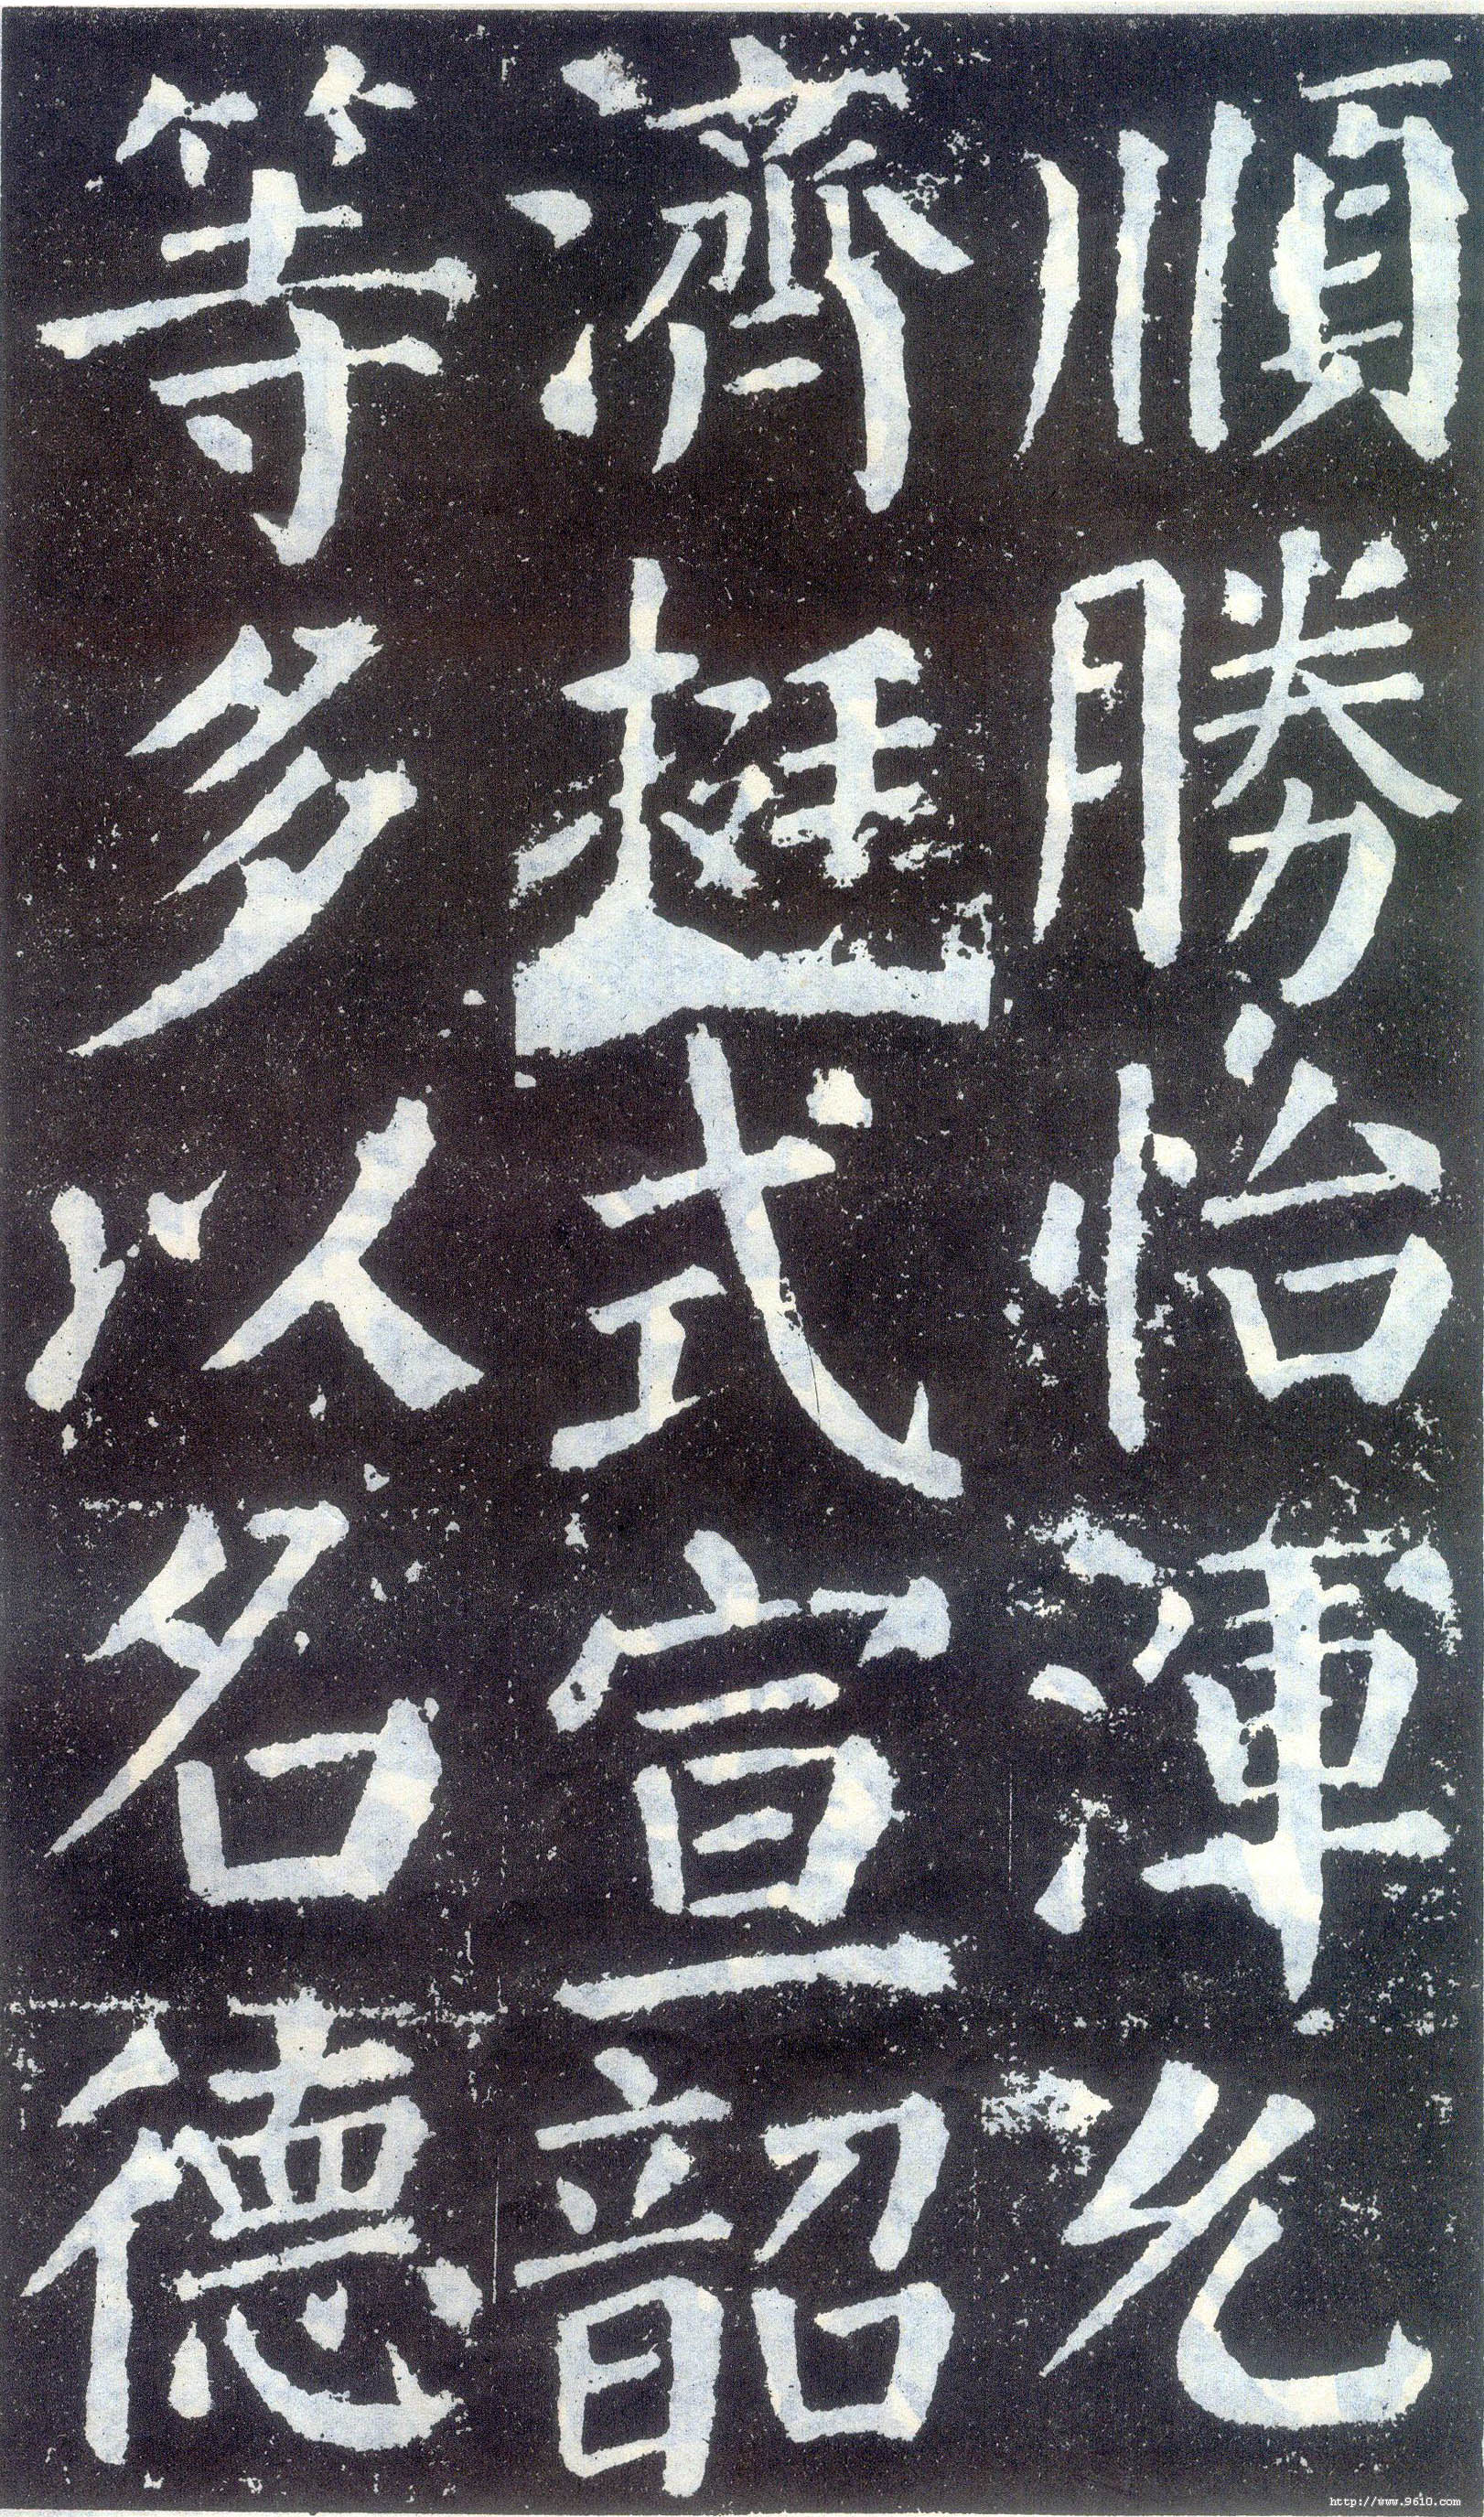 順勝怡渾允
濟挺式宣韶
等多以名德
http://www.9610.com